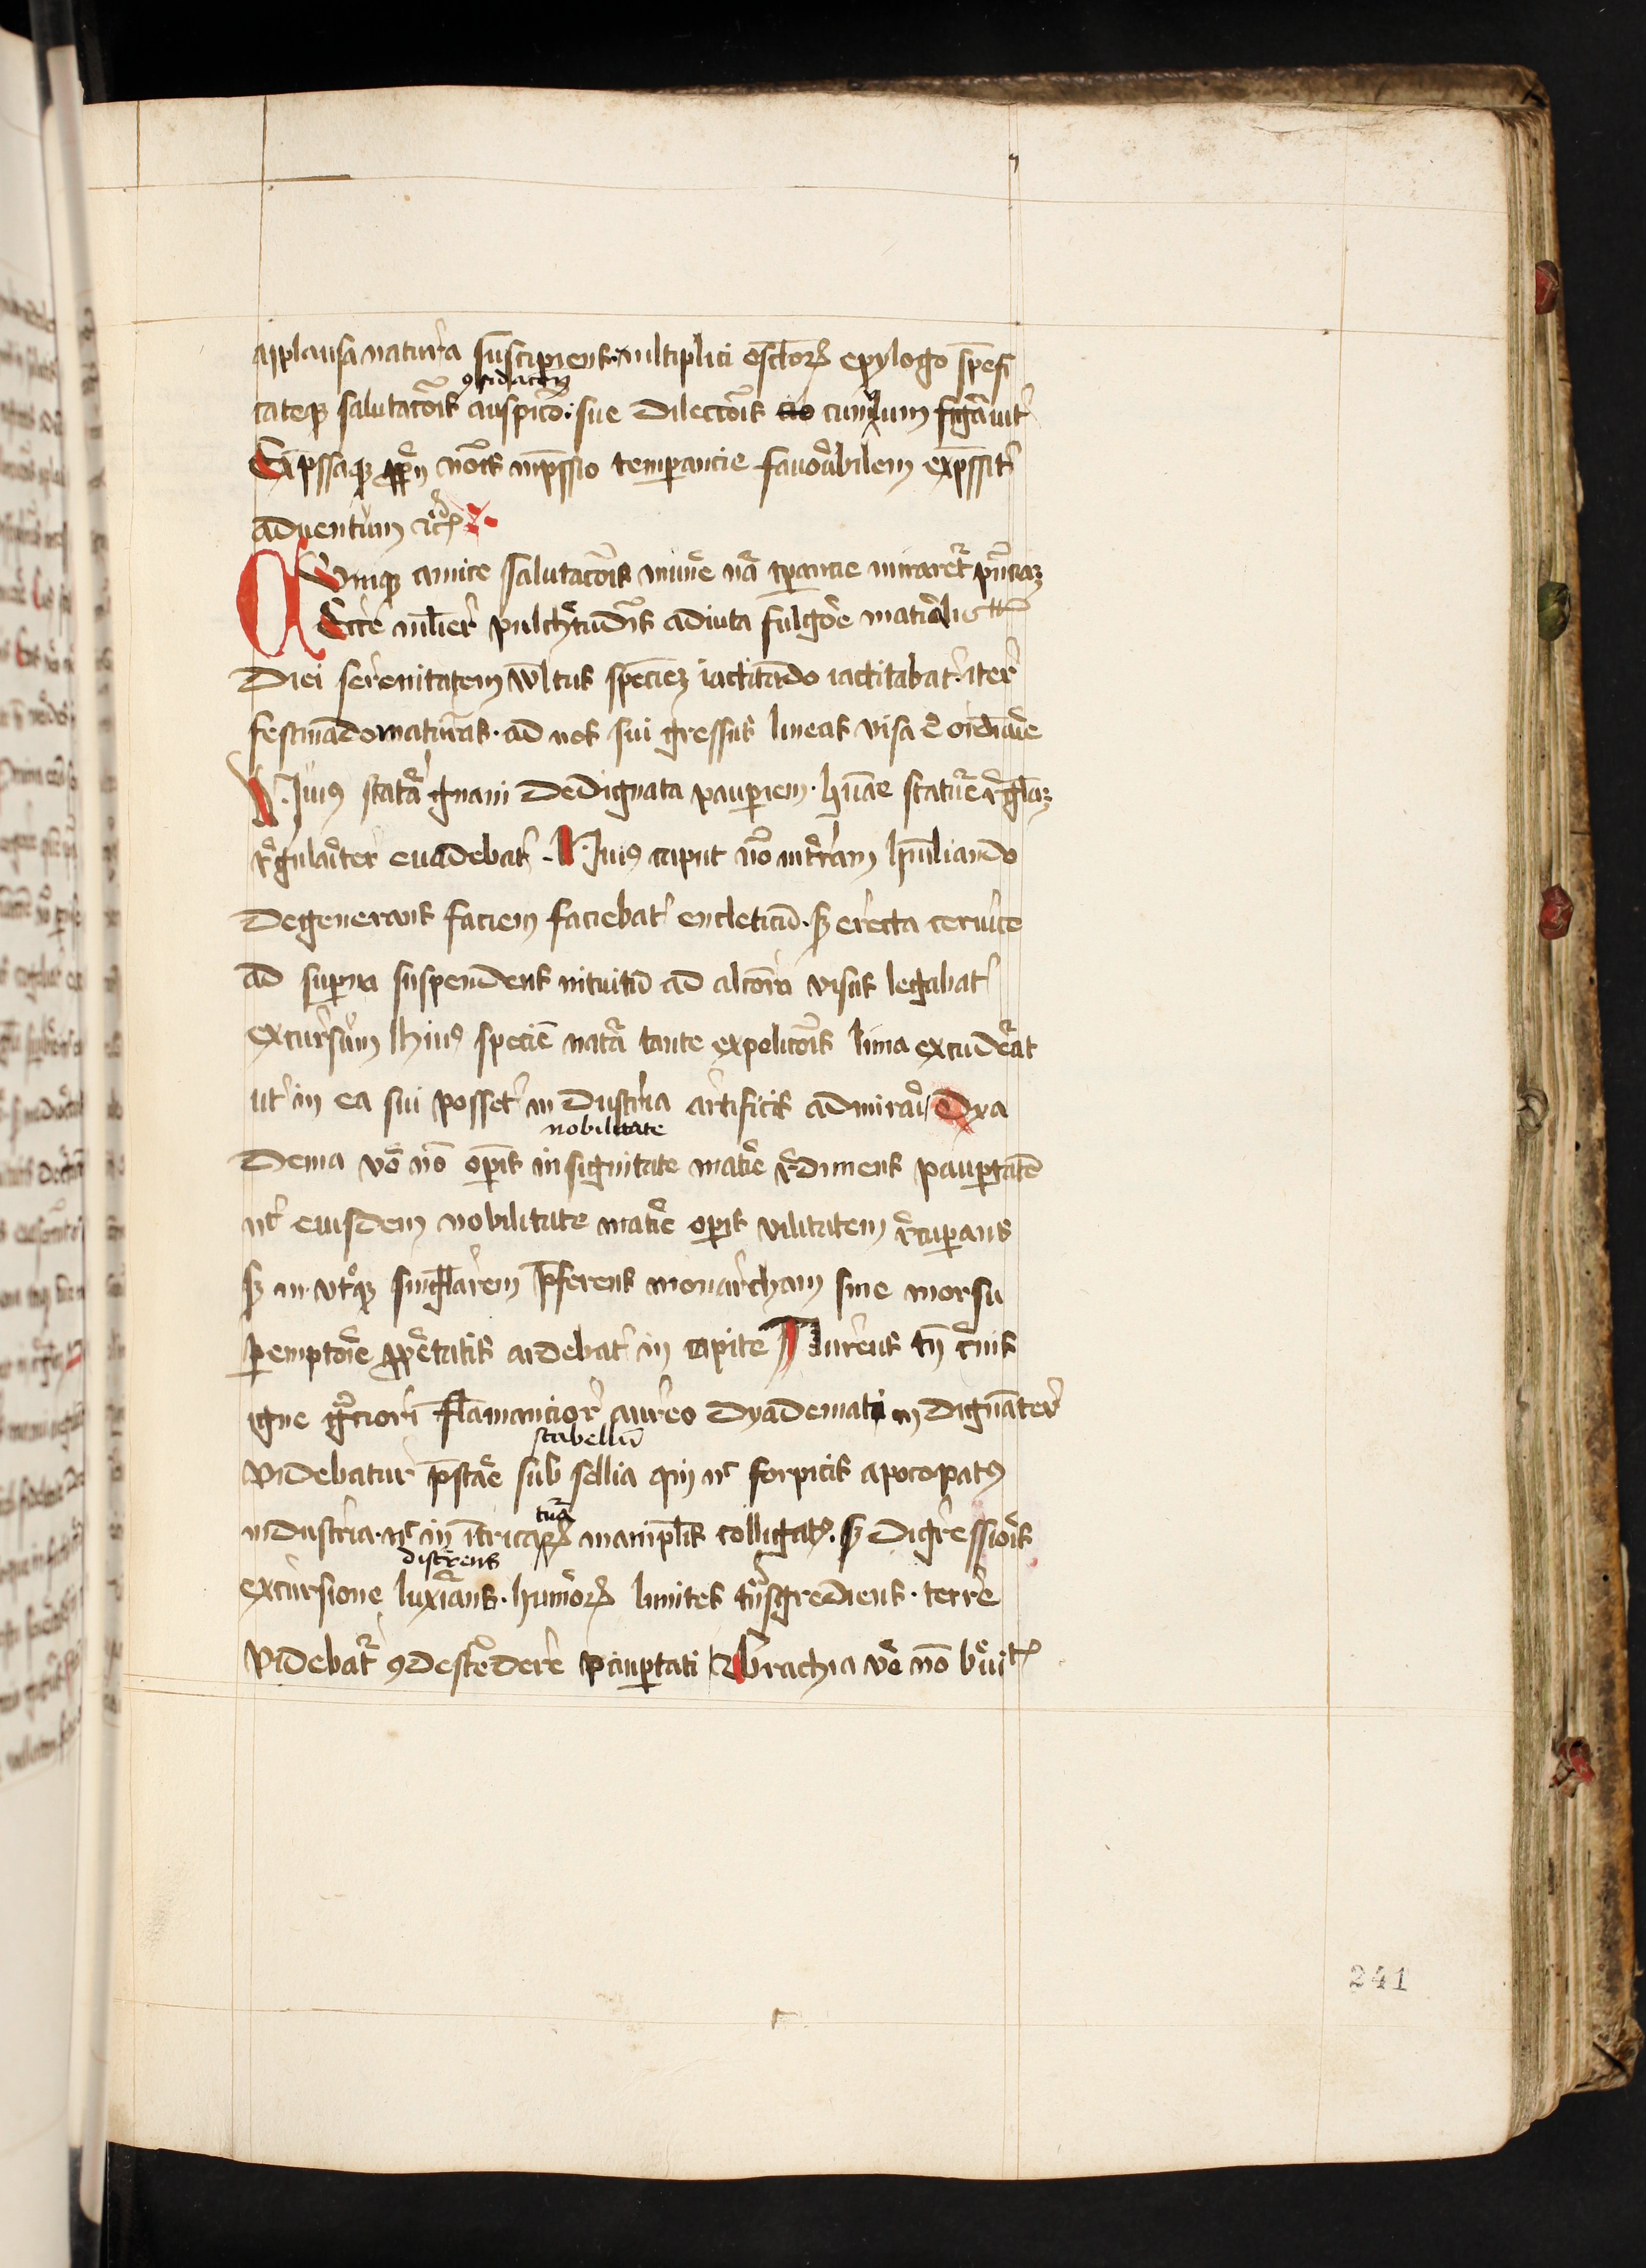 applausa natura suscipiens multiplici osculorum epylogo specifi
cateque salutacionis auspicio sue dileccionis cumulum figuravit
Expressaque nominis inpressio temperancie favorabilem expressit
adventum
Cumque amice salutacionis munere natura temperancie miraretur presenciam
Ecce mulier pulchritudinis adiuta fulgore materialis
Diei serenitatem wltus speciem iactitando iactitabat iter
festinando maturans ad nos sui gressus lineas visa est ordinare
Huius statura gnani dedignata pauperiem humane stature regulam
regulariter evadebat Huius caput non in terram humiliando
degenerans faciem faciebat encleticum sed erecta cervice
ad superna suspendens intuitum ad alciora visus legabat
excursum huius speciem natura tante expolicionis lima excuderat
ut in ea sui posset industria artificis admirari Dya
nobilitate
dema vero non operis insignitate materie redimens paupertatem
nec eiusdem nobilitate materie operis vilitatem recuperans
sed in utroque singularem preferens monarcham sine morsu
peremptorie proprietatis ardebat in capite Aureus tamen crinis
igne graciori flamancior aureo dyademati indignanter
scabellum
videbatur prestare sub sellia qui nec forpicis apocopatus
industria nec in tricaturarum manipulis colligatus sed digressionis
discurrens
excursione luxurians humerorum limites transgrediens terre
videbatur condescendere paupertati Brachia vero non brevit
241